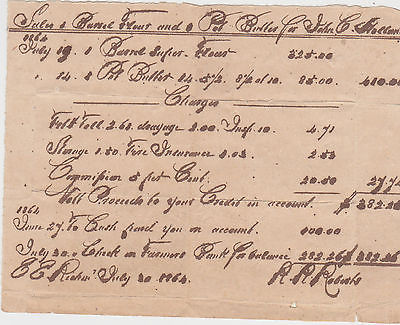 Sales 1 Barrel Flour and 1 Pot Butter for John C.
1864
July 19. 1 Barrel Super. Flour 325.00
" 24. 1 Pot Butter 85.00 410.00
Charges
Toll 2.60 drayage 2.00 Insp. 10. 4.71
Storage 1.50 Fire Insurance 1.03 2.53
Commission 5 per Cent. 20.50 27.74
Nett Proceeds to your Credit in account. $ 382.26
1864
June 27. To Cash paid you on account. 100.00
July 30. " Check on Farmers Bank for balance 282.26 $382.26
E E Richm^d July 30 1864. R. R. Roberts